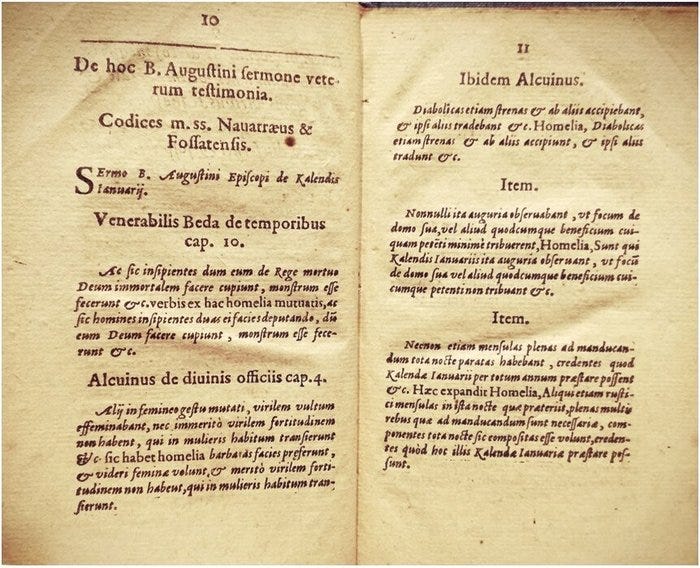 10
De hoc B. Augustini sermone vete-
rum testimonia.
Codices m.ss. Nauarræus &
Fossatensis.
Sermo B. Augustini Episcopi de Kalendis
Ianuarij.
Venerabilis Beda de temporibus
cap. 10.
Ac sic insipientes dum eum de Rege mortuo
Deum immortalem facere cupiunt, monstrum esse
fecerunt &c. verbis ex hac homelia mutuatis, ac
sic homines insipientes duas ei facies deputando, dũ
eum Deum facere cupiunt, monstrum esse fece-
runt &c.
Alcuinus de diuinis officiis cap. 4.
Alij in femineo gestu mutati, virilem vultum
effeminabant, nec immeritò virilem fortitudinem
non habent, qui in mulieris habitum transierunt
&c. sic habet homelia barbaras facies preferunt,
& videri feminæ volunt, & meritò virilem forti-
tudinem non habent, qui in mulieris habitum tran-
sierunt.
11
Ibidem Alcuinus.
Diabolicas etiam strenas & ab aliis accipiebant,
& ipsi aliis tradebant &c. Homelia, Diabolicas
etiam strenas & ab aliis accipiunt, & ipsi aliis
tradunt &c.
Item.
Nonnulli ita auguria obseruabant, vt focum de
domo sua, vel aliud quodcumque beneficium cui-
quam petẽti minimè tribuerent, Homelia, Sunt qui
Kalendis Ianuariis ita auguria obseruant, vt focũ
de domo sua vel aliud quodcumque beneficium cui-
cumque petenti non tribuant &c.
Item.
Necnon etiam mensulas plenas ad manducan-
dum tota nocte paratas habebant, credentes quod
Kalendæ Ianuarii per totum annum præstare possent
&c. Hæc expandit Homelia, Aliqui etiam rusti-
ci mensulas in ista nocte quæ præteriit, plenas multis
rebus quæ ad manducandum sunt necessariæ, com-
ponentes tota nocte sic compositas esse volunt, creden-
tes quòd hoc illis Kalendæ Ianuariæ præstare pos-
sunt.